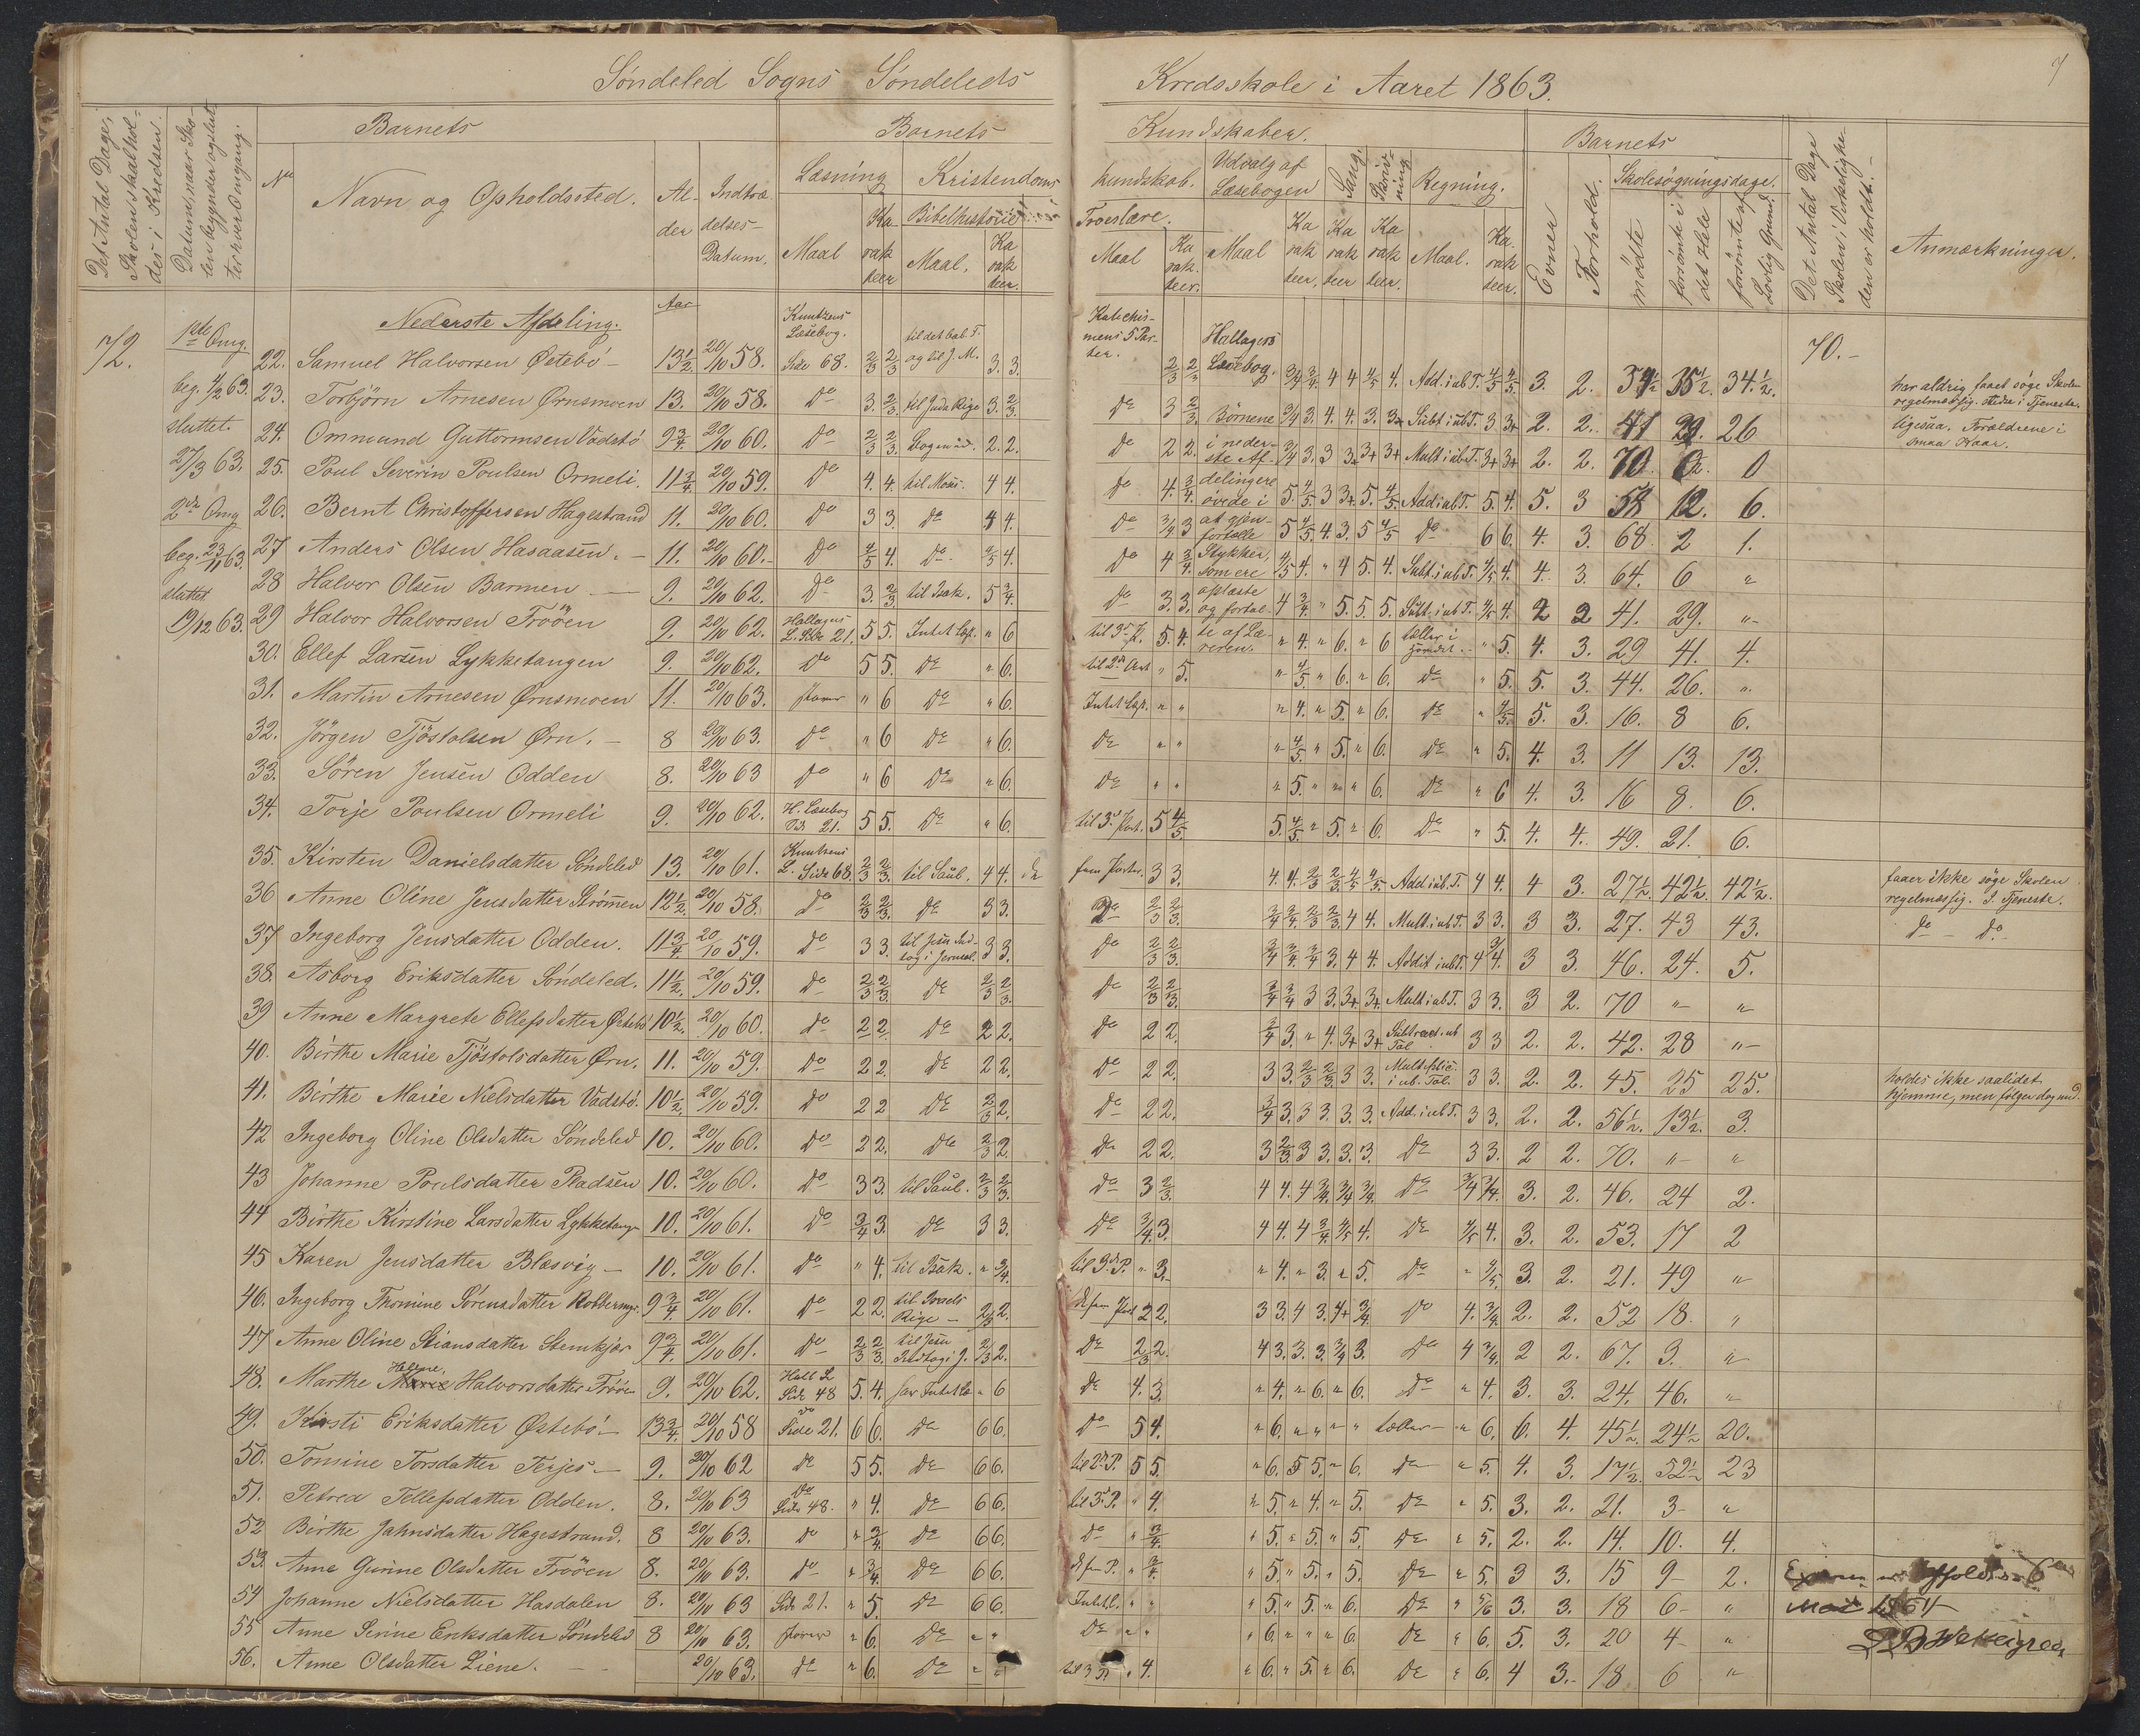 Søndeled Sogns Søndeleds Kredsskole i Aaret 1863. 7
Det Antal Dage, Skolen skal holdes i Kredsen.
Datum, naar Skolen begynder og slutter hver Omgang.
Barnets
No
Navn og Opholdssted.
Alder
Indtrædelses-Datum.
Barnets Kundskaber.
Læsning
Maal
Karakteer
Kristendomskundskab.
Bibelhistorie
Maal.
Karakteer.
Troeslære.
Maal
Karakteer.
Udvalg af Læsebogen
Maal
Karakteer,
Sang.
Karakteer
Skrivning
Karakteer.
Regning.
Maal.
Karakteer.
Barnets
Evner
Forhold.
Skolesøgningsdage.
mødte
forsømte i det Hele
forsømte af Lovlig Grund.
Det Antal Dage Skolen i Virkeligheden er holdt.-
Anmærkninger.
72.
1ste Omg.
beg. 4/2 63.
sluttet
27/3 63.
2den Omg
beg. 23/11 63.
sluttet
19/12 63.
Nederste Afdeling.
Aar
70.-
Hallagers Læsebog.
Børnene i nederste Afdelingere øvede i at gjenfortælle Stykker, som ere oplæste og fortalte af Læreren.
22. Samuel Halvorsen Østebö - 13½. 20/10 58. Kuntzens Læsebog. Side 68. 2/3 2/3 til det bab. F. og til J. M. 3. 3. Katechismens 5 Parter. 2/3 2/3 3/4 3/4 4 4 4/5 4. Add. i ub T. 4/5 4/5 3. 2. 34½ 35½. 34.½. har aldrig faaet søge Skolen regelmæssig.
23. Torbjörn Arnesen Ørnsmoen 13. 20/10 58. Do 3. 2/3 til Juda Rige 3. 2/3. Do 3 2/3 3/4 3. 4. 4. 3. 3+ Subt i ub T. 3 3+ 2. 2. 41 29. 26 ligesaa. Forældrene i smaa Kaar.
24. Ommund Guttormsen Vadstö 9¾ 20/10 60. Do 2/3 2/3. 2. 2. Do 2 2. 3/4 3. 3 3+ 3+ 3+ Mult i ub T. 3+ 3+ 2. 2. 70 0. 0
25. Poul Severin Poulsen Ormeli. 11¾. 20/10 59. Do 4. 4. til Mose. 4 4. Do 4. 3/4. 5. 4/5. 3 3+ 5. 4/5. Add i ub T. 5. 4. 5. 3 58 12. 6.
26. Bernt Christoffersen Hagestrand 11. 20/10 60. Do 3 3. Do 4 4. Do 3/4 3 5 4/5. 4. 3. 5 4/5 Do 6 6. 4. 3. 68 2 1.
27 Anders Olsen Hasaasen. - 11. 20/10 60. - Do 4/5 4. Do - 4/5 4. Do 4 3/4. 4/5 4. " 4 5. 4. Subt. i ub T. 4/5 4. 4. 3. 64. 6 "
28 Halvor Olsen Barmen - 9. 20/10 62. Do 3. 2/3. til Isak. 5 3/4. Do 3. 3. 4 3/4. " 5. 5. 5. Subt. i ub T. 4/5 4. 2 2 41. 29. "-
29 Halvor Halvorsen Tröen 9. 20/10 62. Hallagers L. Side 21. 5 5. Intet Læst. " 6 til 3. P. 5. 4. " 4. " 6. " 6 tæller i Hovedet. " 5. 4. 3. 29 41. 4.
30. Ellef Larsen Lykketangen 9. 20/10 62. Do 5 5. Do " 6. " 5. " 4/5. " 6. " 6. Do " 5. 5. 3. 44. 26. "
31. Martin Arnesen Ørnsmoen 11. 20/10 63. staver " 6 Do " 6. Intet Læst. " " " 4. " 5. " 6. Do " 4/5. 5. 3. 16. 8 6.
32. Jörgen Tjöstolsen Ørn. - 8 20/10 63. Do " 6 Do " 6. Do " " " 4/5 " 5. " 6. Do " 5. 4. 3. 11 13. 13.
33. Sören Jensen Odden 8. 20/10 63 Do " 6 Do " 6. Do " " " 5. " " " 6. Do " 6 4. 3. 16 8. 6.
34. Torje Poulsen Ormeli 9. 20/10 62. H. Læsebog Side 21. 5 5. Do " 6. til 3. Part. 5 4/5. 5. 4/5. " 5. " 6. Do " 5. 4. 4. 49. 21. 6.
35. Kirsten Danielsdatter Søndeled 13. 20/10 61. Kuntzens L. Side 68. 2/3 2/3. til Saul. 4 4. fem Parter. 3 3. 4. 4. 2/3 2/3 4/5 4/5. Add i ub. T. 4 4. 4 3. 27½. 42½. 42½. faaer ikke søge Skolen regelmæssig. I Tjeneste.
36 Anne Oline Jensdatter Strømen 12½. 20/10 58. Do 2/3 2/3. Do 3 3. Do 2/3 2/3. 3/4 3/4. 2/3 2/3 4 4. Mult. i ub T. 3 3. 3 3. 27. 43 43. Do - Do
37 Ingeborg Jensdatter Odden. 11¾. 20/10 59. Do 3 3. til Jesu Indtog i Jerusal. 3 3. Do 2/3 2/3. 3/4 3/4. 3/4 3. 4 4. Addit i ub T. 4 3/4. 3 3. 46. 24. 5.
38. Asborg Eriksdatter Søndeled. 11½. 20/10 59. Do 2/3 2/3. Do 2/3 2/3. Do 2/3 2/3. 3/4 3/4 3 3. 3+ 3+. Mult i ub T. 3 3. 3 2. 70 "- "
39 Anne Margrete Ellefsdatter Østebö 10½. 20/10 60. Do 2 2. Do 2 2. Do 2 2. 3/4 3. " 4. 3+ 3+ Subtract. i ub Tal 3 3 2. 2. 42. 28 "-
40. Birthe Marie Tjöstolsdatter Ørn. 11. 20/10 59. Do 2 2. Do 2 2. Do 2 2. 3 3. 2/3 2/3. 3 3. Multiplic. i ub. Tal. 3 3. 2. 2. 45. 25 25. holdes ikke saalidet hjemme, men følger dog med.
41. Birthe Marie Nielsdatter Vadstö. 10½. 20/10 59. Do 2 2 Do 2/3 2. Do 2 2. 3/4 3. 3 3. 3. 3. Add. i ub T. 3 3. 2. 2. 56½. 13½. 3.
42 Ingeborg Oline Olsdatter Søndeled 10. 20/10 60. Do 2 2. Do 2/3 2. Do 2 2. 3 2/3. 3 3. 3. 3. Do 3 3. 2 2. 70. " "
43 Johanne Poulsdatter Pladsen 10. 20/10 60. Do 3 3. til Saul. 2/3 2/3. Do 3 2/3 4 4. 4 3/4. 3/4 3/4. Do 3/4 3/4. 3. 2. 46. 24 2.
44 Birthe Kirstine Larsdatter Lykketange 10. 20/10 61. Do 3/4 3. Do 3 3. Do 3/4. 3. 4 4. 4 3/4. 4/5 4. Do 4/5 4. 3. 2. 53. 17 2
45 Karen Jensdatter Blasvig - 10. 20/10 61. Do " 4. til Isak. " 3/4. til 3die P. " 3. " 4. " 3. " 5. Do " 4/5. 3. 2. 21. 49 "
46. Ingeborg Thomine Sörensdatter 9¾ 20/10 61. Do 2 2. til Israels Rige - 2/3 2. 2 2. 3 3. 4 3. 4+ 3/4 Do 4. 3/4. 2. 2. 52 18. "
47 Anne Oline Stiansdatter Stemkjær 9¾. 20/10 61. Do 2/3 2/3. til Jesu Indtog i J. 2/3 2. Do 2/3 2. 4 3. 3. 3. 3/4 3. Do 4 3/4. 2 2. 67. 3. "
48. Marthe Marie Hellene Halvorsdatter Tröen 9. 20/10 62. Hall L Side 48 5. 4. har Intet Læ " 6 Do 4. 3. " 4. " 6. " 6. Do " 4. 3. 3. 24. 46. "
49. Kirsti Eriksdatter Østebö - 13¾. 20/10 58 Do Side 21. 6 6. Do 6 6. Do 5 4. " 6. " " " " tæller - " 6. 6. 4. 45½. 24½ 20.
50. Tomine Torsdatter Terjes - 9. 20/10 62 Do 5 5. Do 6 6. til 2. P. 5 5. " 6. 5 5. " 6. Do " 5. 4. 3. 17½. 52½ 23
51. Petrea Tellefsdatter Odden. 8. 20/10 63 Do Side 48. " 4. Do 6 6. til 3. P. " 4. " 5. " 4. " 5. Do " 5. 3. 2. 21. 3- "
52 Birthe Jahnsdatter Hagestrand. 8 20/10 63. Do " 3/4. Do 6 6. Do " 3/4. " 5. " 5. " 5. Do " 5. 2. 2. 14. 10. 4.
53. Anne Gurine Olsdatter Tröen 8. 20/10 63. Do " 3/4. Do 6 6. " 3/4. " 5 " 5. " 5. Do " 5. 3 3. 15 9- 2.
54 Johanne Nielsdatter Hasdalen 8. 20/10 63 Side 21. " 5. Do 6 6. Intet L. " " " 5. " 5. " 6. Do " 5/6 3. 3. 18 6- "
55 Anne Serine Eriksdatter Søndeled 8 20/10 63. staver " 6. Do " " Do " " " 6. " " " 6. Do " 6. 5. 3. 20 4- "
56. Anne Olsdatter Liene. - - 20/10 63. Do " 6. Do " " til 3 P. " 4. " 6. " 5. " 6. Do " 6. 4 3.- 18 6 "
Examen afholdt 6
Mai 1864